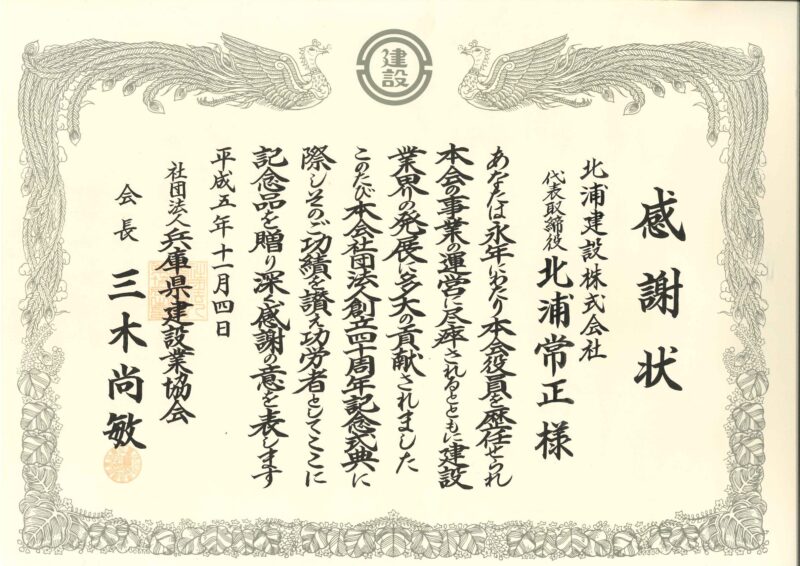 建設
感謝状
北浦建設株式会社
代表取締役 北浦常正 様
あなたは永年にわたり本会役員を歴任せられ
本会の事業の運営に尽瘁されるとともに建設
業界の発展に多大の貢献されました
このたび本会社団法人創立四十周年記念式典に
際しそのご功績を讃え功労者としてここに
記念品を贈り深く感謝の意を表します
平成五年十一月四日
社団法人兵庫県建設業協会
会長 三木尚敏